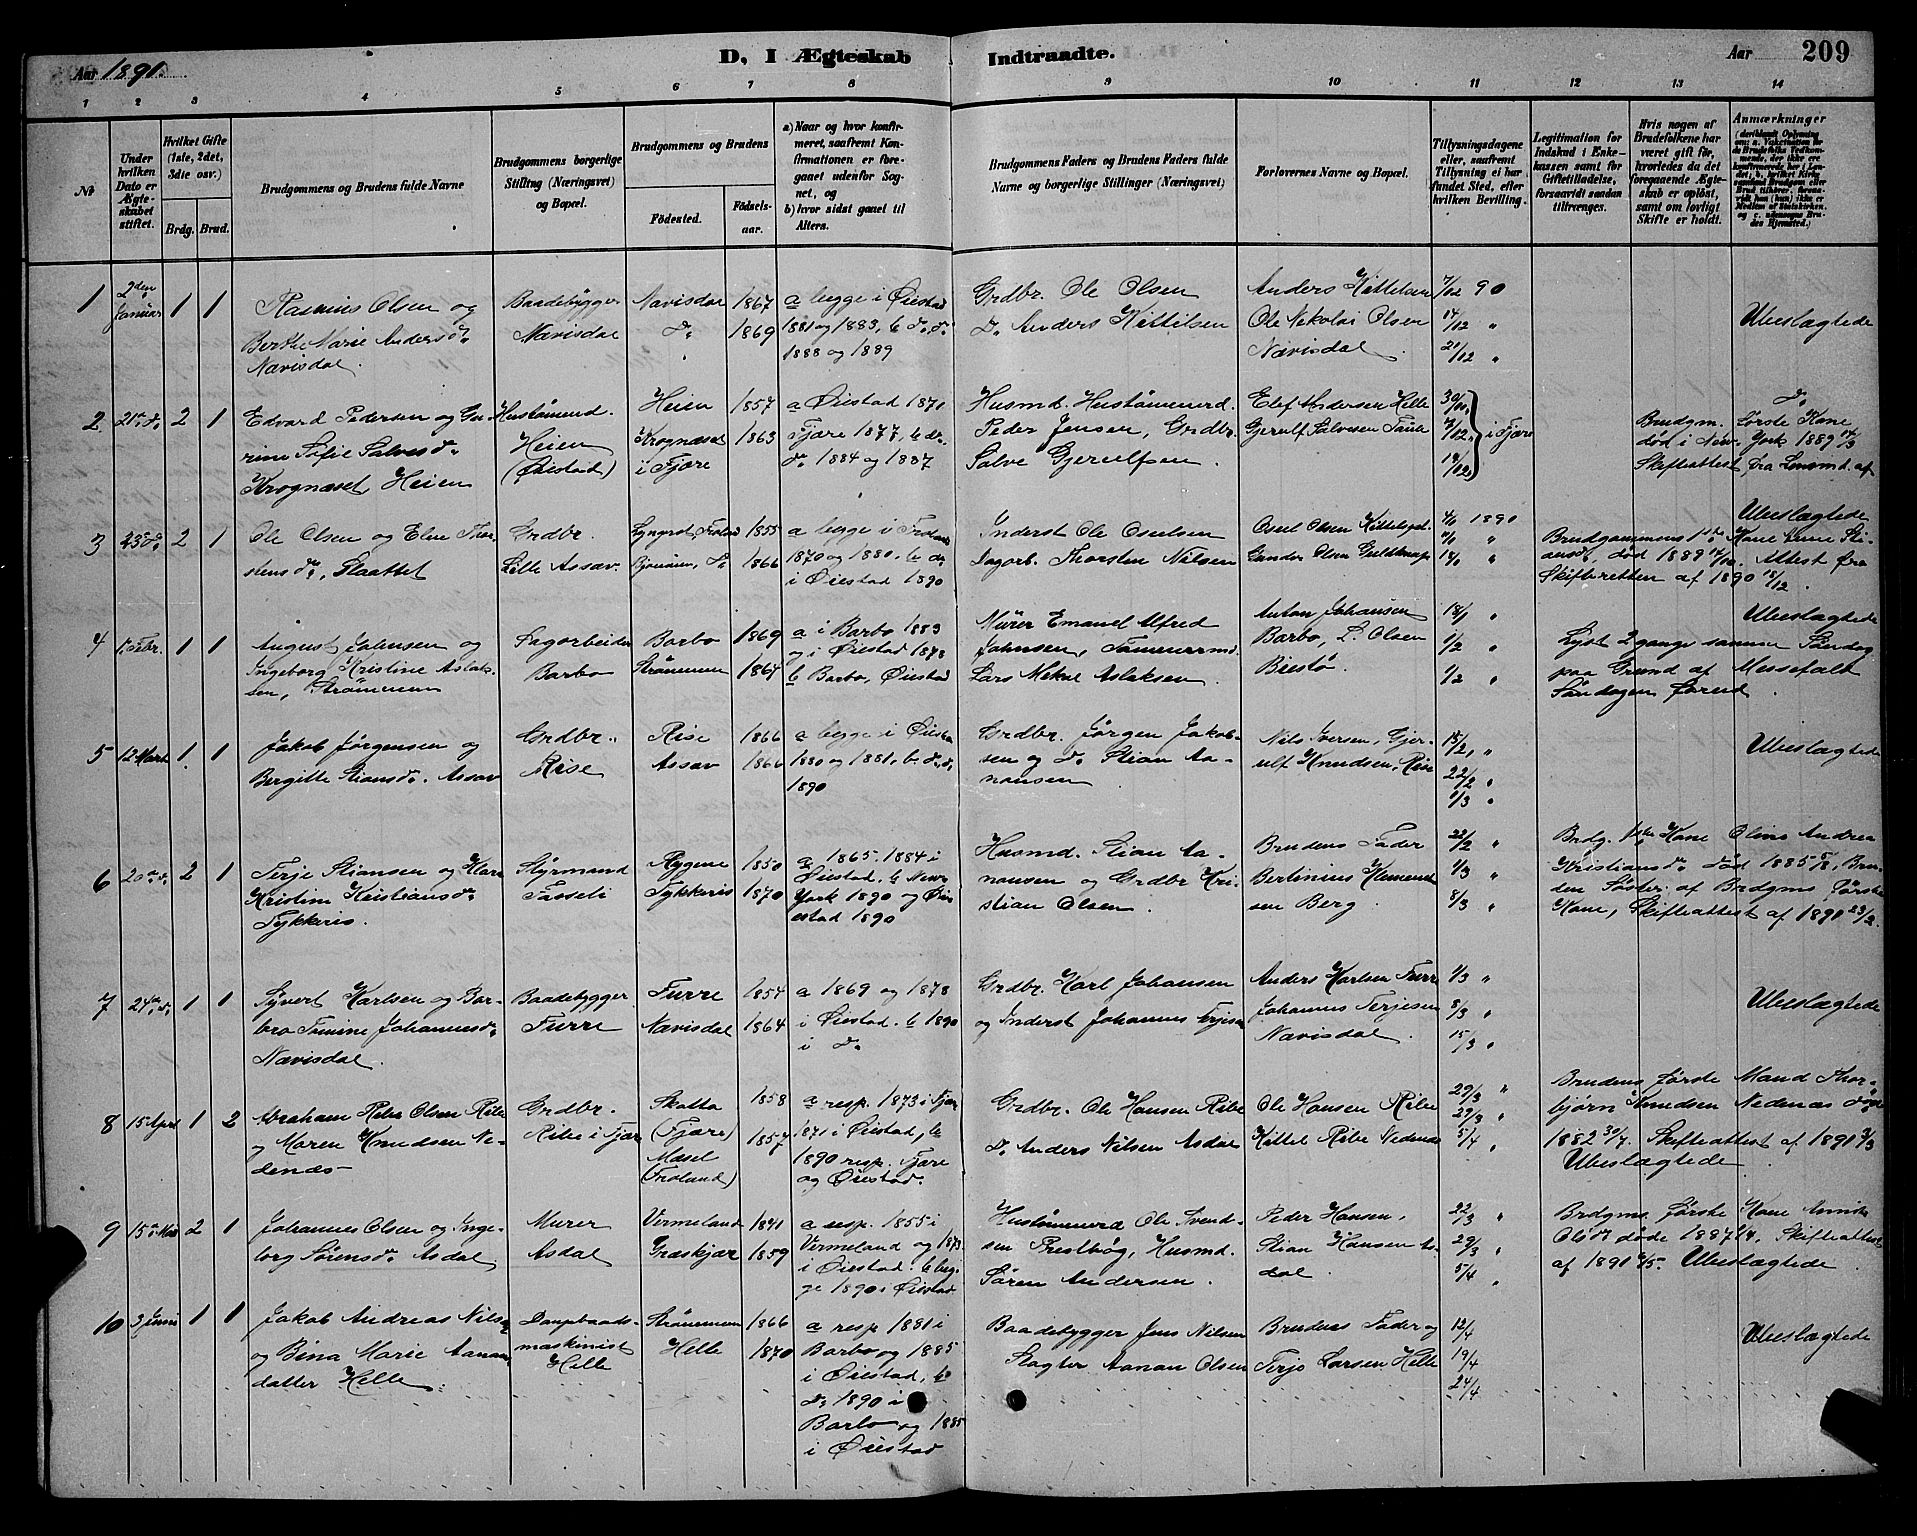 Aar 1891.
D, I Ægteskab Indtraadte.
Aar 209
1 2 3 4 5 6 7 8 9 10 11 12 13 14
№
Under hvilken Dato er Ægteskabet stiftet.
Hvilket Gifte (1ste, 2det, 3die osv.)
Brdg. Brud.
Brudgommens og Brudens fulde Navne
Brudgommens borgerlige Stilling (Næringsvei) og Bopæl.
Brudgommens og Brudens
Fødested.
Fødselsaar.
a) Naar og hvor konfirmeret, saafremt Konfirmationen er foregaaet udenfor Sognet, og
b) hvor sidst gaaet til Alters.
Brudgommens Faders og Brudens Faders fulde Navne og borgerlige Stillinger (Næringsvei)
Forlovernes Navne og Bopæl.
Tillysningsdagene eller, saafremt Tillysning ei har fundet Sted, efter hvilken Bevilling.
Legitimation for Indskud i Enkekassen samt for Giftetilladelse, forsaavidt saadan tiltrænges.
Hvis nogen af Brudefolkene har været gift før, hvorledes da det foregaaende Ægteskab er opløst, samt om lovligt Skifte er holdt.
Anmærkninger
1 2den Januar 1 1
Rasmus Olsen og
Berthe Marie Andersd.
Nævisdal.
Baadebygger
Nævisdal
Nævisdal 1867
do 1869
a begge i Øiestad
1881 og 1883, b do, do
1888 og 1889
Grdbr. Ole Olsen
do Anders Kittilsen
Anders Kittelsen
Ole Nikolai Olsen
Nævisdal
7/12 90
14/12 "
21/12 "
Ubeslægtede
2 21de do 2 1
Edvard Pedersen og Gu-
rine Sofie Salvesd.
Krognæset, Heien
Hustømmend.
Heien
(Øiestad)
Heien 1857
Krognæset 1863
i Fjære
a Øiestad 1871
Fjære 1877, b do.
do 1884 og 1887
Husmd. Hustømmerd.
Peder Jensen, Grdbr.
Salve Gerulfsen
Elef Andersen Helle
Gerulf Salvesen
30/11
7/12 i Fjære
14/12
do
Brudgm. Første Kone
død i New York 1889
Skifteattest fra Lensmd. af
3 23de do 2 1
Ole Olsen og Eline Thor-
stensd., Slaattet
Grdbr.
Lille Assav.
Froland 1855
do 1866
a begge i Froland
1870 og 1880. b do
i Øiestad 1890
Inderst Ole Oselsen
Dagarb. Thorsten Nilsen
Osul Olsen
Gunder Olsen
4/1 1890
11/1 "
18/1 "
Ubeslægtede
Brudgommens 1ste Kone
død 1889. Attest fra
Skifteretten af 1890 18/12
4 1. Febr. 1 1
August Johnsen og
Ingeborg Kristine Aslak-
sen, Strømmen
Sagarbeider
Barbo
Barbo 1869
Strømmen 1864
a i Barbo 1883
og i Øiestad 1878
b Barbo, Øiestad
Murer Emanuel Alfred
Johnsen, Tømmermd.
Lars Mekal Aslaksen.
Anton Johansen
Barbo, L. Olsen
Biestø.
18/1 "
1/2 "
1/2 "
Ubeslægtede
Lyst 2 gange samme Søndag
paa Grund af Messefald
Søndagen forud.
5 12 Marts 1 1
Jakob Jørgensen og
Bergitte Stiansd. Assav
Grdbr.
Rise
Rise 1866
Assav 1866
a begge i Øiestad
1880 og 1881, b. do, do
1890
Grdbr. Jørgen Jakob-
sen og do Stian Aa-
nonsen
Nils Iversen, Gjer-
ulf Knudsen, Rise
15/2 "
22/2 "
1/3 "
Ubeslægtede
6 20de do 2 1
Terje Stiansen og
Kristine Kristiansd.
Tykkeris.
Styrmand
Fasseli
Rygene 1850
Tykkeris 1870
a 1865. 1884 i
Øiestad. b New
York 1890 og Øi-
estad 1890
Husmd. Stian Aa-
nonsen og Grdbr. Kri-
stian Olsen.
Brudens Fader
Bertinius Klement-
sen Berg.
22/2 "
1/3 "
8/3 "
Brdg. 1ste Kone Oline Andrea
Kristiansd. død 1885, Bru-
den Søster af Brdgms første
Kone, Skifteattest af 1891 23/2.
7 24de do 1 1
Syvert Karlsen og Bar-
bro Tomine Johannesd.
Nævisdal.
Baadebygger
Furre
Furre 1854
Nævisdal 1864
a 1869 og 1878
i Øiestad. b 1890
i do
Grdbr. Karl Johansen
og Inderst Johannes Terjesen
Anders Karlsen Furre
Johannes Terjesen
Nævisdal
1/3 "
8/3 "
15/3 "
Ubeslægtede
8 15 April 1 2
Abraham Ribe Olsen Ribe
og Maren Knudsen Ne-
denæs
Grdbr.
Ribe i Fjære
Skatta 1858
(Fjære) 1857
Mæsel
(Froland)
a resp. 1873 i Fjære
1871 i Øiestad, b
1890 resp. Fjære
og Øiestad.
Grdbr. Ole Hansen Ribe
do Anders Nilsen Asdal
Ole Hansen Ribe
Kittel Ribe Nedenæs
22/3 "
29/3 "
5/4 "
Brudens første Mand Thor-
bjørn Knudsen Nedenæs døde
1882 30/7. Skifteattest af 1891
Ubeslægtede
9 15de Mai 2 1
Johannes Olsen og Inge-
borg Sørensd. Asdal
Murer
Asdal
Vermeland 1841
Græskjær 1859
a resp. 1855 i
Vermeland og 1873
i Øiestad. b beg-
ge 1890 i Øiestad
Hustømmermd Ole Svend-
sen Prestbøg, Husmd.
Søren Andersen.
Peder Hansen,
Stian Hansen As-
dal
22/3 "
29/3 "
5/4 "
Brdgms. første Kone
døde 1887, Skifteattest
af 1891 6/5. Ubeslægtede
10 3 Juni 1 1
Jakob Andreas Nilsen
og Bina Marie Aanons-
datter Helle
Dampbaads-
maskinist
Helle
Strømmen 1866
Helle 1870
a resp 1881 i
Barbo og 1885
i Øiestad, b
do 1890 i
Barbo og 1885
i Øiestad
Baadebygger Jens Nilsen
Slagter Aanon Olsen
Brudens Fader og
Terje Larsen Helle
12/4
19/4
24/4
Ubeslægtede